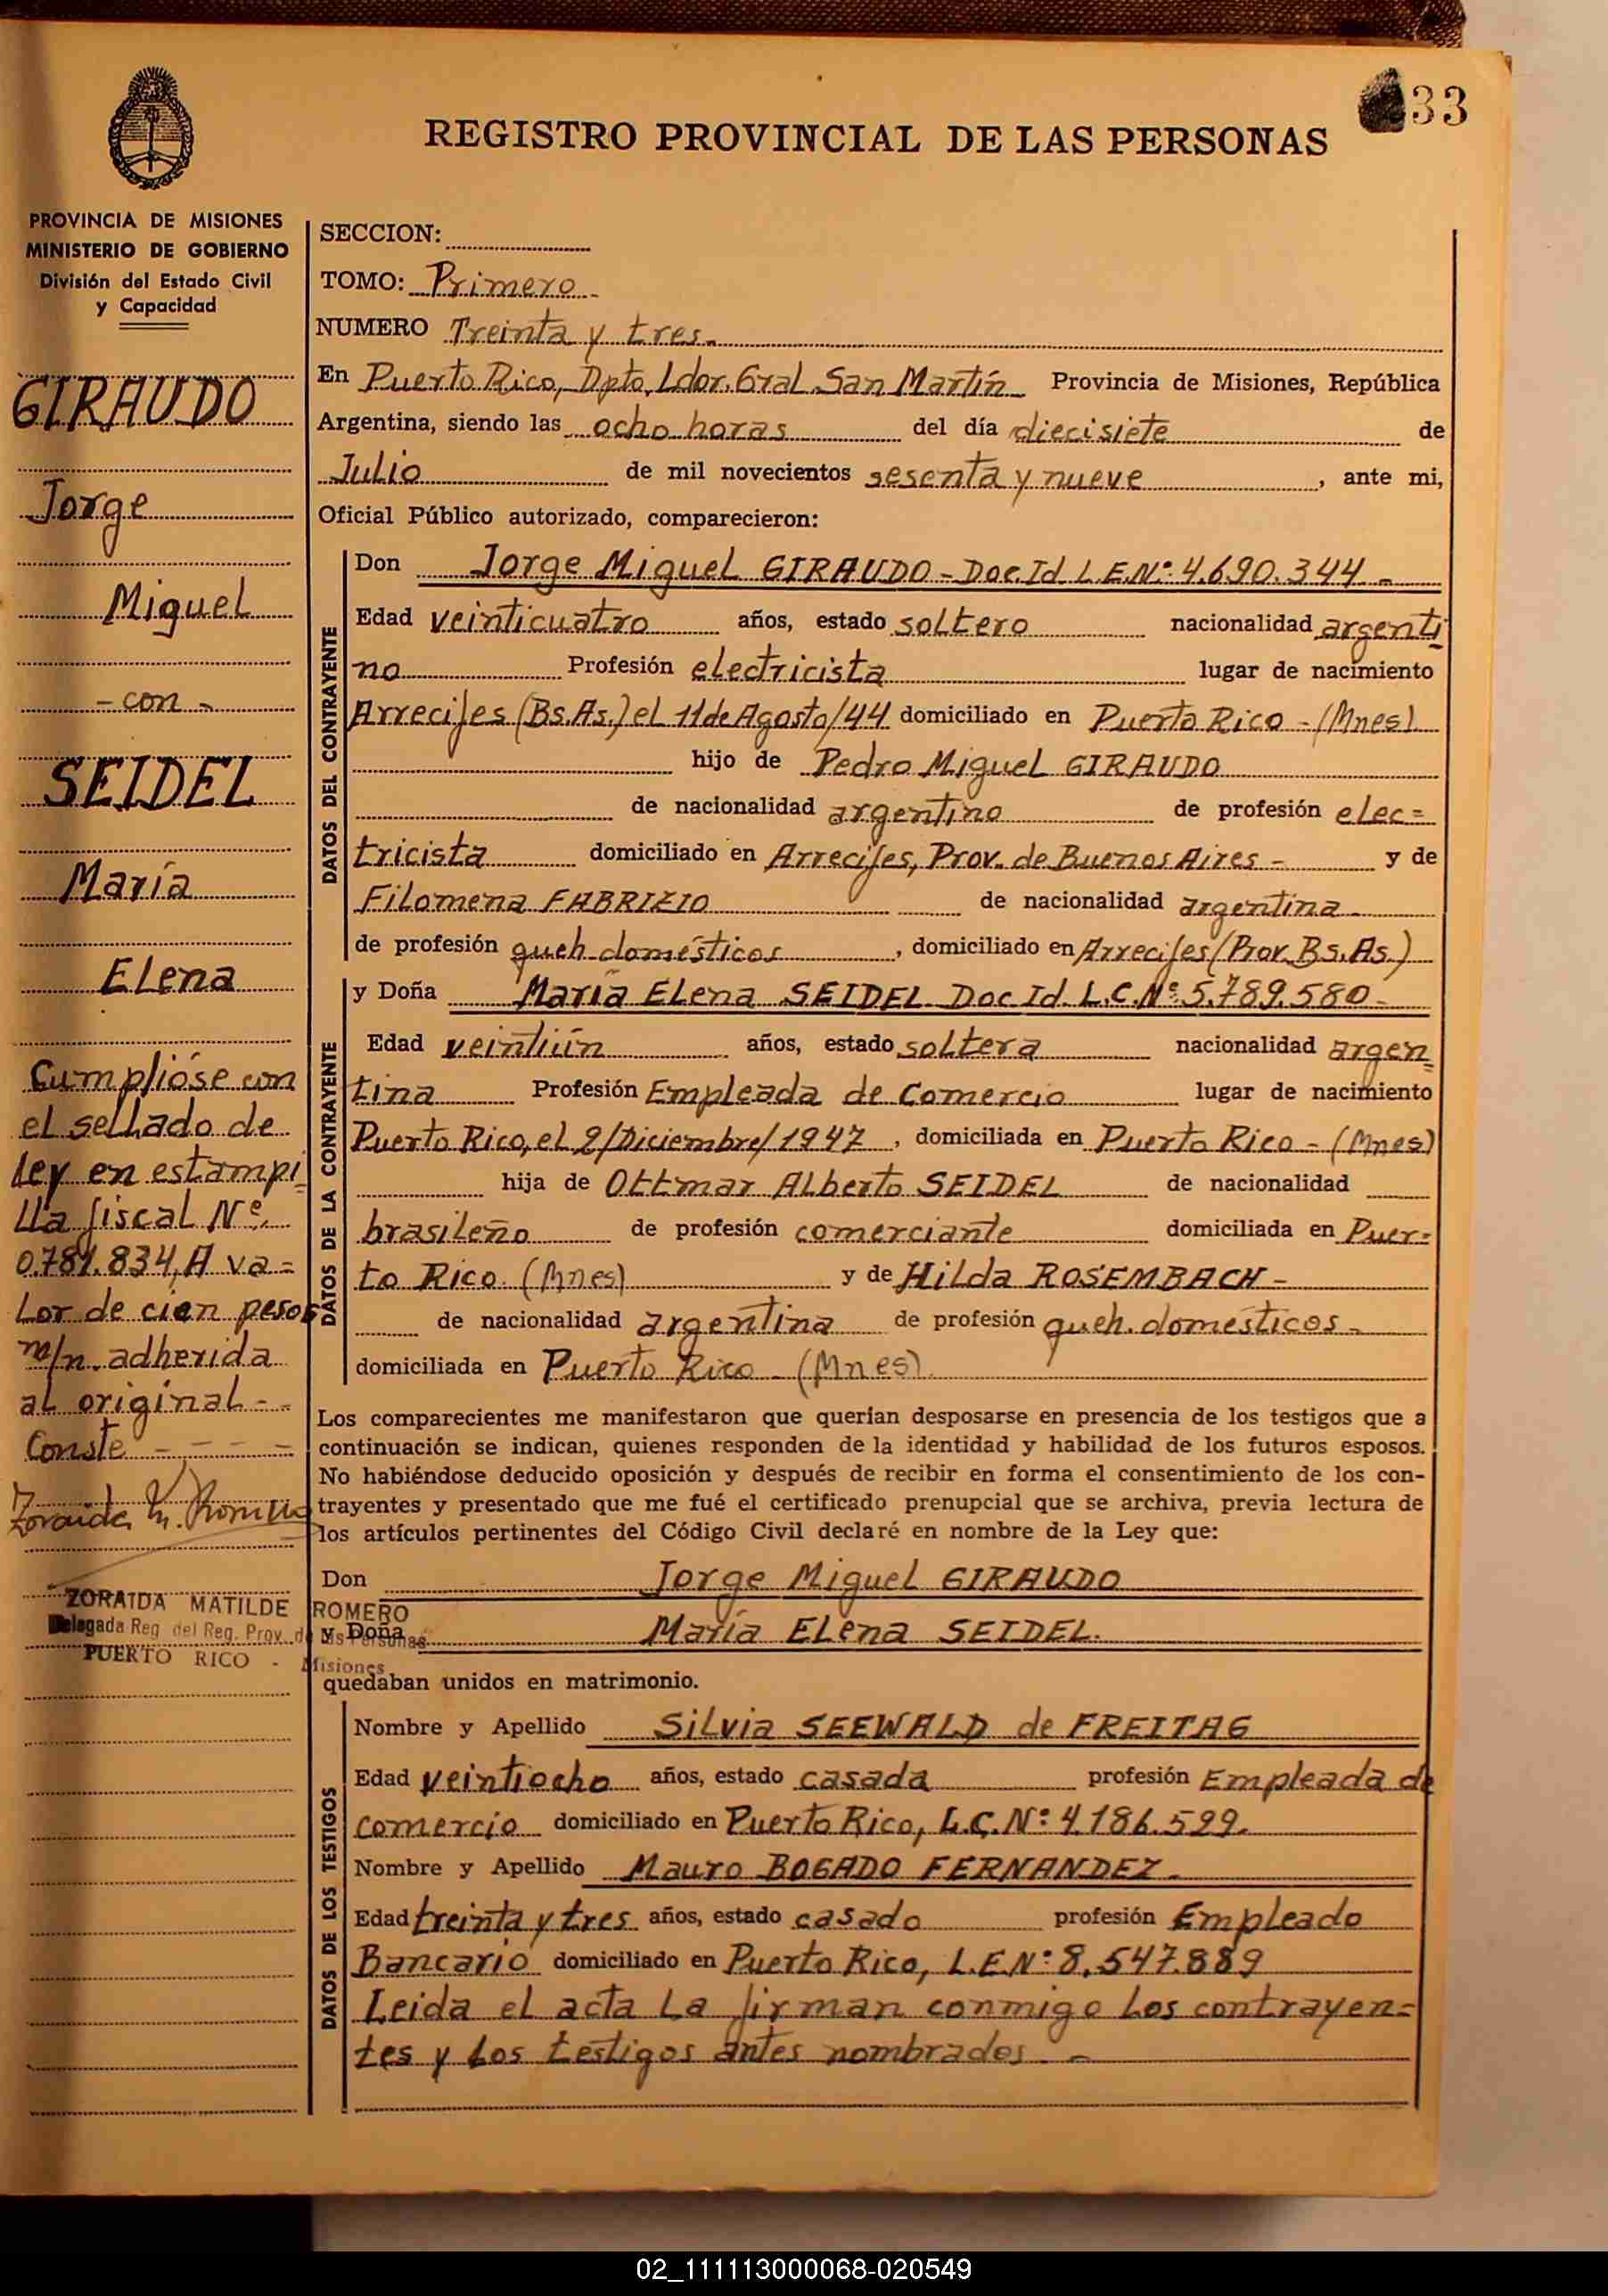 33
REGISTRO PROVINCIAL DE LAS PERSONAS
PROVINCIA DE MISIONES
MINISTERIO DE GOBIERNO
División del Estado Civil
y Capacidad
GIRAUDO
Jorge
Miguel
- con -
SEIDEL
María
Elena
Cumplióse con
el sellado de
ley en estampi
lla fiscal Nº
0.781.834, A va=
lor de cien pesos
m/n. adherida
al original - -
Conste - - - -
Zoraida M. Romero
ZORAIDA MATILDE ROMERO
Delegada Reg del Reg. Prov. de las Personas
PUERTO RICO - Misiones
SECCION:
TOMO: Primero -
NUMERO Treinta y tres.
En Puerto Rico, Dpto. Ldor. Gral. San Martín Provincia de Misiones, República
Argentina, siendo las ocho horas del día diecisiete de
Julio de mil novecientos sesenta y nueve, ante mi,
Oficial Público autorizado, comparecieron:
DATOS DEL CONTRAYENTE
Don Jorge Miguel GIRAUDO - Doc. Id L.E.Nº: 4.690.344 -
Edad veinticuatro años, estado soltero nacionalidad argenti
no Profesión electricista lugar de nacimiento
Arrecifes (Bs.As.) el 11 de Agosto/44 domiciliado en Puerto Rico - (Mnes)
hijo de Pedro Miguel GIRAUDO
de nacionalidad argentino de profesión elec=
tricista domiciliado en Arrecifes, Prov. de Buenos Aires - y de
Filomena FABRIZIO de nacionalidad argentina -
de profesión queh. domésticos, domiciliado en Arrecifes (Prov. Bs. As.)
DATOS DE LA CONTRAYENTE
y Doña María Elena SEIDEL Doc Id. L.C. Nº 5.789.580 -
Edad veintiún años, estado soltera nacionalidad argen
tina Profesión Empleada de Comercio lugar de nacimiento
Puerto Rico, el 2/Diciembre/1947, domiciliada en Puerto Rico - (Mnes)
hija de Ottmar Alberto SEIDEL de nacionalidad
brasileño de profesión comerciante domiciliada en Puer=
to Rico. (Mnes) y de Hilda ROSEMBACH -
de nacionalidad argentina de profesión queh. domésticos -
domiciliada en Puerto Rico - (Mnes).
Los comparecientes me manifestaron que querían desposarse en presencia de los testigos que a
continuación se indican, quienes responden de la identidad y habilidad de los futuros esposos.
No habiéndose deducido oposición y después de recibir en forma el consentimiento de los con-
trayentes y presentado que me fué el certificado prenupcial que se archiva, previa lectura de
los artículos pertinentes del Código Civil declaré en nombre de la Ley que:
Don Jorge Miguel GIRAUDO
y Doña María Elena SEIDEL.
quedaban unidos en matrimonio.
DATOS DE LOS TESTIGOS
Nombre y Apellido Silvia SEEWALD de FREITAG
Edad veintiocho años, estado casada profesión Empleada de
comercio domiciliado en Puerto Rico, L.C. Nº: 4.186.599.
Nombre y Apellido Mauro BOGADO FERNANDEZ -
Edad treinta y tres años, estado casado profesión Empleado
Bancario domiciliado en Puerto Rico, L.E.Nº: 8.547.889
Leida el acta la firman conmigo los contrayen=
tes y los testigos antes nombrados. -
02_111113000068-020549